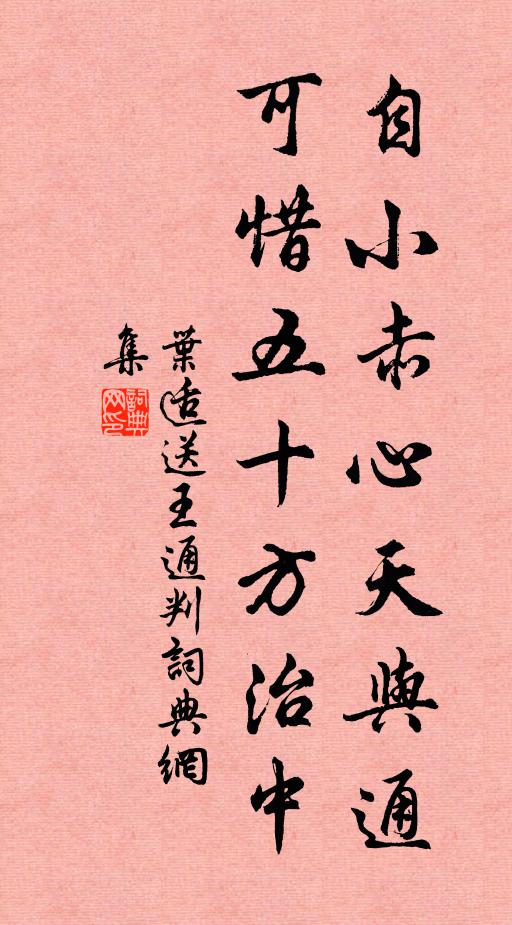 自小赤心天與通
可惜五十方治中
葉适送王通判詞典網
集
詞典網印